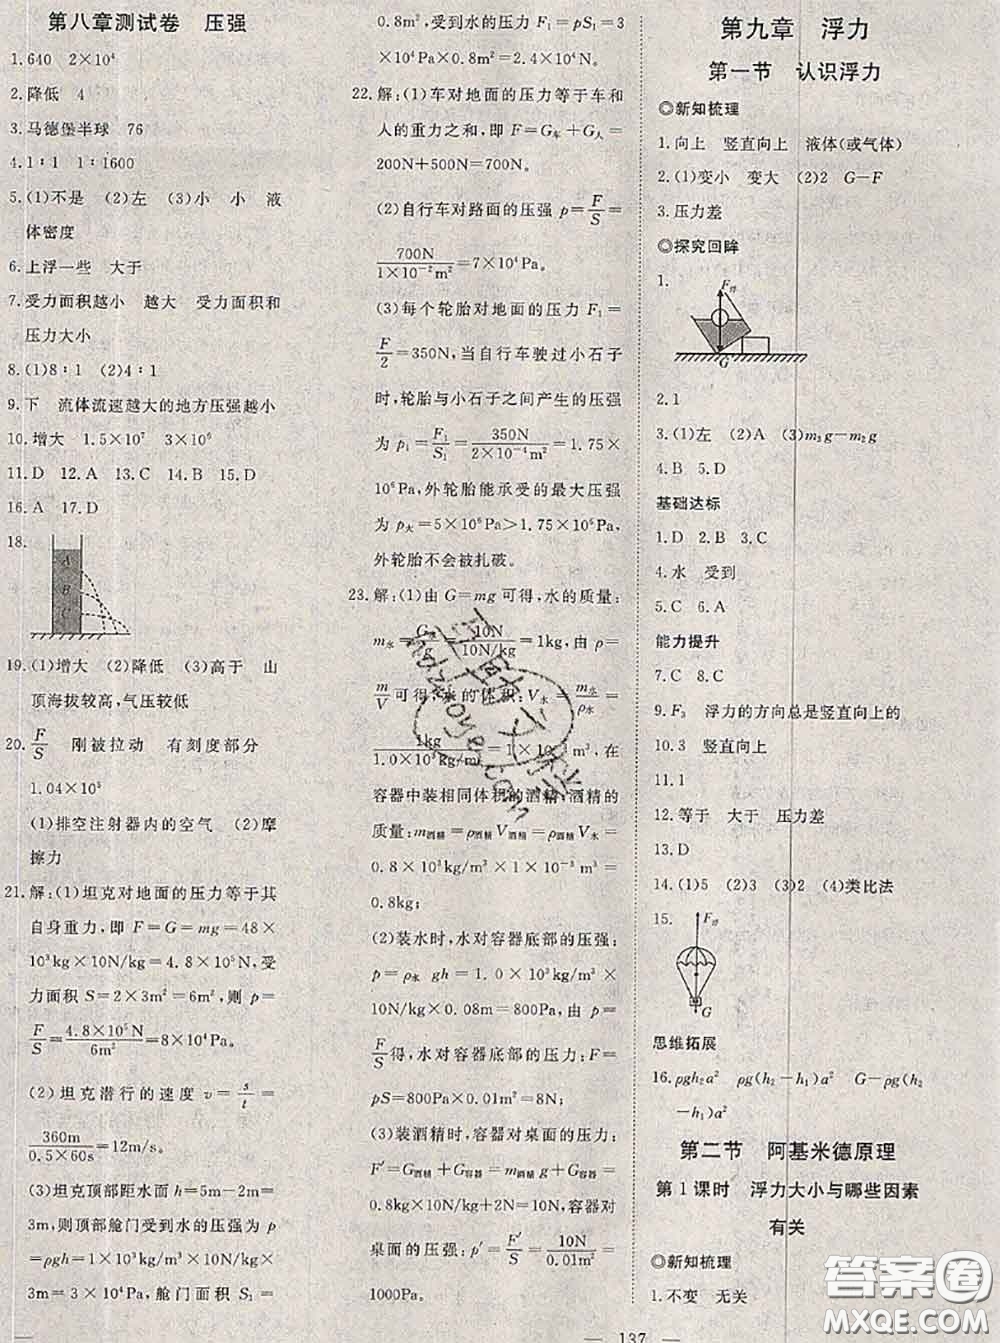 第八章测试卷　压强
1.640　2×10⁴
2.降低　4
3.马德堡半球　76
4.1∶1　1∶1600
5.(1)不是　(2)左　(3)小　小　液
体密度
6.上浮一些　大于
7.受力面积越小　越大　受力面积和
压力大小
8.(1)8∶1　(2)4∶1
9.下　流体流速越大的地方压强越小
10.增大　1.5×10⁷　3×10⁶
11.D　12.A　13.C　14.B　15.D
16.A　17.D
18.
A
B
C
19.(1)增大　(2)降低　(3)高于　山
顶海拔较高,气压较低
20. F/S　刚被拉动　有刻度部分
1.04×10⁵
(1)排空注射器内的空气　(2)摩
擦力
21.解:(1)坦克对地面的压力等于其
自身重力,即 F=G=mg=48×
10³kg×10N/kg=4.8×10⁵N,受
力面积 S=2×3m²=6m²,则 p=
F/S=4.8×10⁵N/6m²=8×10⁴Pa。
(2)坦克潜行的速度 v=s/t=
360m/0.5×60s=12m/s。
(3)坦克顶部距水面 h=5m-2m=
3m,则顶部舱门受到水的压强为 p
=ρgh=1×10³kg/m³×10N/kg×
3m=3×10⁴Pa,舱门面积 S₁=
0.8m²,受到水的压力 F₁=pS₁=3
×10⁴Pa×0.8m²=2.4×10⁴N。
22.解:(1)车对地面的压力等于车和
人的重力之和,即 F=G车+G人=
200N+500N=700N。
(2)自行车对路面的压强 p=F/S=
700N/1×10⁻²m²=7×10⁴Pa。
(3)每个轮胎对地面的压力 F₁=
F/2=350N,当自行车驶过小石子
时,轮胎与小石子之间产生的压强
为 p₁=F₁/S₁=350N/2×10⁻⁴m²=1.75×
10⁶Pa,外轮胎能承受的最大压强
为 p大=5×10⁶Pa>1.75×10⁶Pa,
外轮胎不会被扎破。
23.解:(1)由 G=mg 可得,水的质量:
m水=G/g=10N/10N/kg=1kg,由 ρ=
m/V可得,水的体积:V水=m水/ρ水=
1kg/1.0×10³kg/m³=1×10⁻³m³,在
容器中装相同体积的酒精,酒精的
质量:m酒精=ρ酒精V酒精=ρ酒精V水=
0.8×10³kg/m³×1×10⁻³m³=
0.8kg;
(2)装水时,水对容器底部的压强:
p=ρ水 gh=1.0×10³kg/m³×
10N/kg×0.08m=800Pa,由 p=
F/S得,水对容器底部的压力:F=
pS=800Pa×10⁻²m²=8N;
(3)装酒精时,容器对桌面的压力:
F′=G酒精+G容器=m酒精g+G容器=
0.8kg×10N/kg+2N=10N,容器对
桌面的压强:p′=F′/S=10N/0.01m²=
1000Pa。
第九章　浮力
第一节　认识浮力
◎新知梳理
1.向上　竖直向上　液体(或气体)
2.(1)变小　变大　(2)2　G-F
3.压力差
◎探究回眸
1.
F浮
G
2.1
3.(1)左　(2)A　(3)m₃g-m₂g
4.B　5.D
基础达标
1.D　2.B　3.C
4.水　受到
5.C　6.A
能力提升
7.C　8.C
9.F₃　浮力的方向总是竖直向上的
10.3　竖直向上
11.1
12.等于　大于　压力差
13.D
14.(1)5　(2)3　(3)2　(4)类比法
15.
F浮
G
思维拓展
16.ρgh₂a²　ρg(h₂-h₁)a²　ρg(h₂
-h₁)a²
第二节　阿基米德原理
第1课时　浮力大小与哪些因素
有关
◎新知梳理
1.不变　无关
— 137 —
答案圈
MXQE.COM